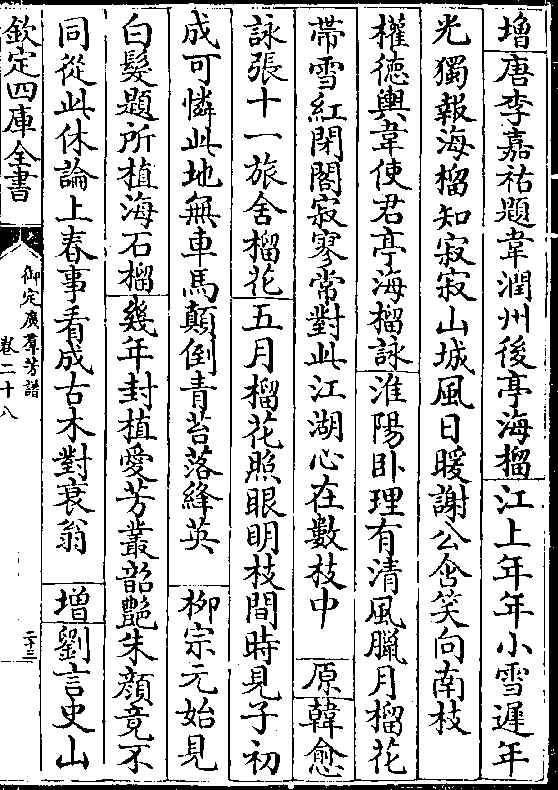 增唐李嘉祐題韋潤州後亭海榴江上年年小雪遲年
光獨報海榴知寂寂山城風日暖謝公含笑向南枝
權德輿韋使君亭海榴詠淮陽卧理有清風臘月榴花
帶雪紅閉閤寂寥常對此江湖心在數枝中 原韓愈
詠張十一旅舍榴花五月榴花照眼明枝間時見子初
成可憐此地無車馬顛倒青苔落絳英 柳宗元始見
白髮題所植海石榴幾年封植愛芳叢韶艷朱顔竟不
同從此休論上春事看成古木對衰翁 增劉言史山
欽定四庫全書
御定廣羣芳譜
卷二十八
二十三